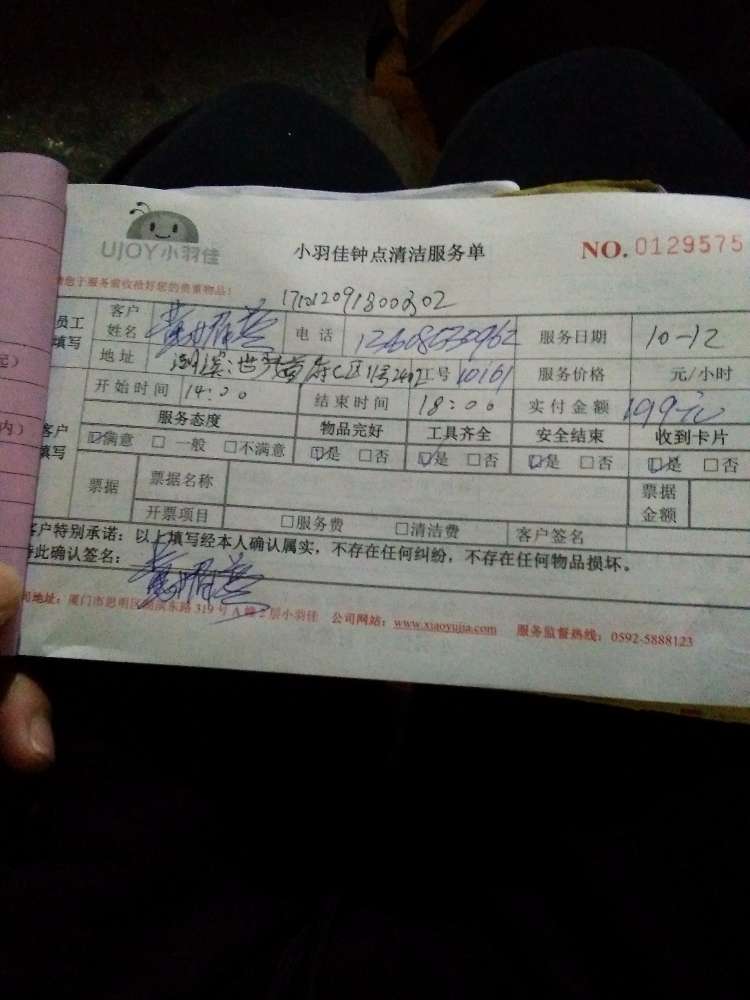 UJOY小羽佳
小羽佳钟点清洁服务单
NO. 0129575
您于服务前收拾好您的贵重物品!
171012091800302
员工填写 客户姓名 电话 服务日期 10-12
地址 工号 10161 服务价格 元/小时
客户填写 开始时间 14:00 结束时间 18:00 实付金额 199元
服务态度 物品完好 工具齐全 安全结束 收到卡片
☑满意 □一般 □不满意 ☑是 □否 ☑是 □否 ☑是 □否 ☑是 □否
票据 票据名称 票据金额
开票项目 □服务费 □清洁费 客户签名
客户特别承诺:以上填写经本人确认属实,不存在任何纠纷,不存在任何物品损坏。
特此确认签名:
司地址:厦门市思明区湖滨东路319号A幢2层小羽佳 公司网站:www.xiaoyujia.com 服务监督热线:0592-5888123